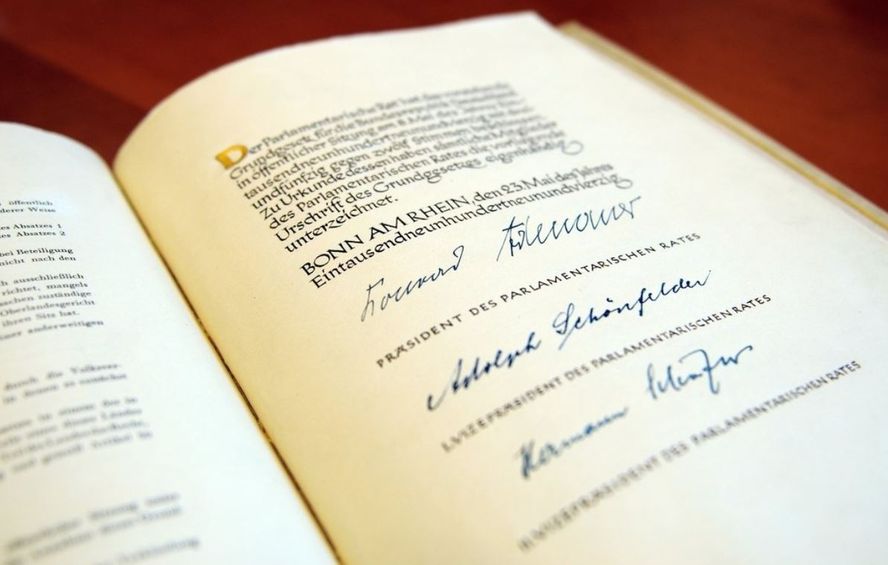 öffentlich
derer Weise
es Absatzes 1
es Absatzes 2
bei Beteiligung
nicht nach den
ch ausschließlich
richtet, mangels
schen zuständige
Oberlandesgericht
ihren Sitz hat.
einer anderweitigen
durch die
Der Parlamentarische Rat hat das vorstehende
Grundgesetz für die Bundesrepublik Deutschland
in öffentlicher Sitzung am 8. Mai des Jahres Ein-
tausendneunhundertneunundvierzig mit drei-
undfünfzig gegen zwölf Stimmen beschlossen.
Zu Urkunde dessen haben sämtliche Mitglieder
des Parlamentarischen Rates die vorliegende
Urschrift des Grundgesetzes eigenhändig
unterzeichnet.
BONN AM RHEIN, den 23. Mai des Jahres
Eintausendneunhundertneunundvierzig
Konrad Adenauer
PRÆSIDENT DES PARLAMENTARISCHEN RATES
Adolph Schönfelder
I. VIZEPRÆSIDENT DES PARLAMENTARISCHEN RATES
Hermann Schäfer
II. VIZEPRÆSIDENT DES PARLAMENTARISCHEN RATES